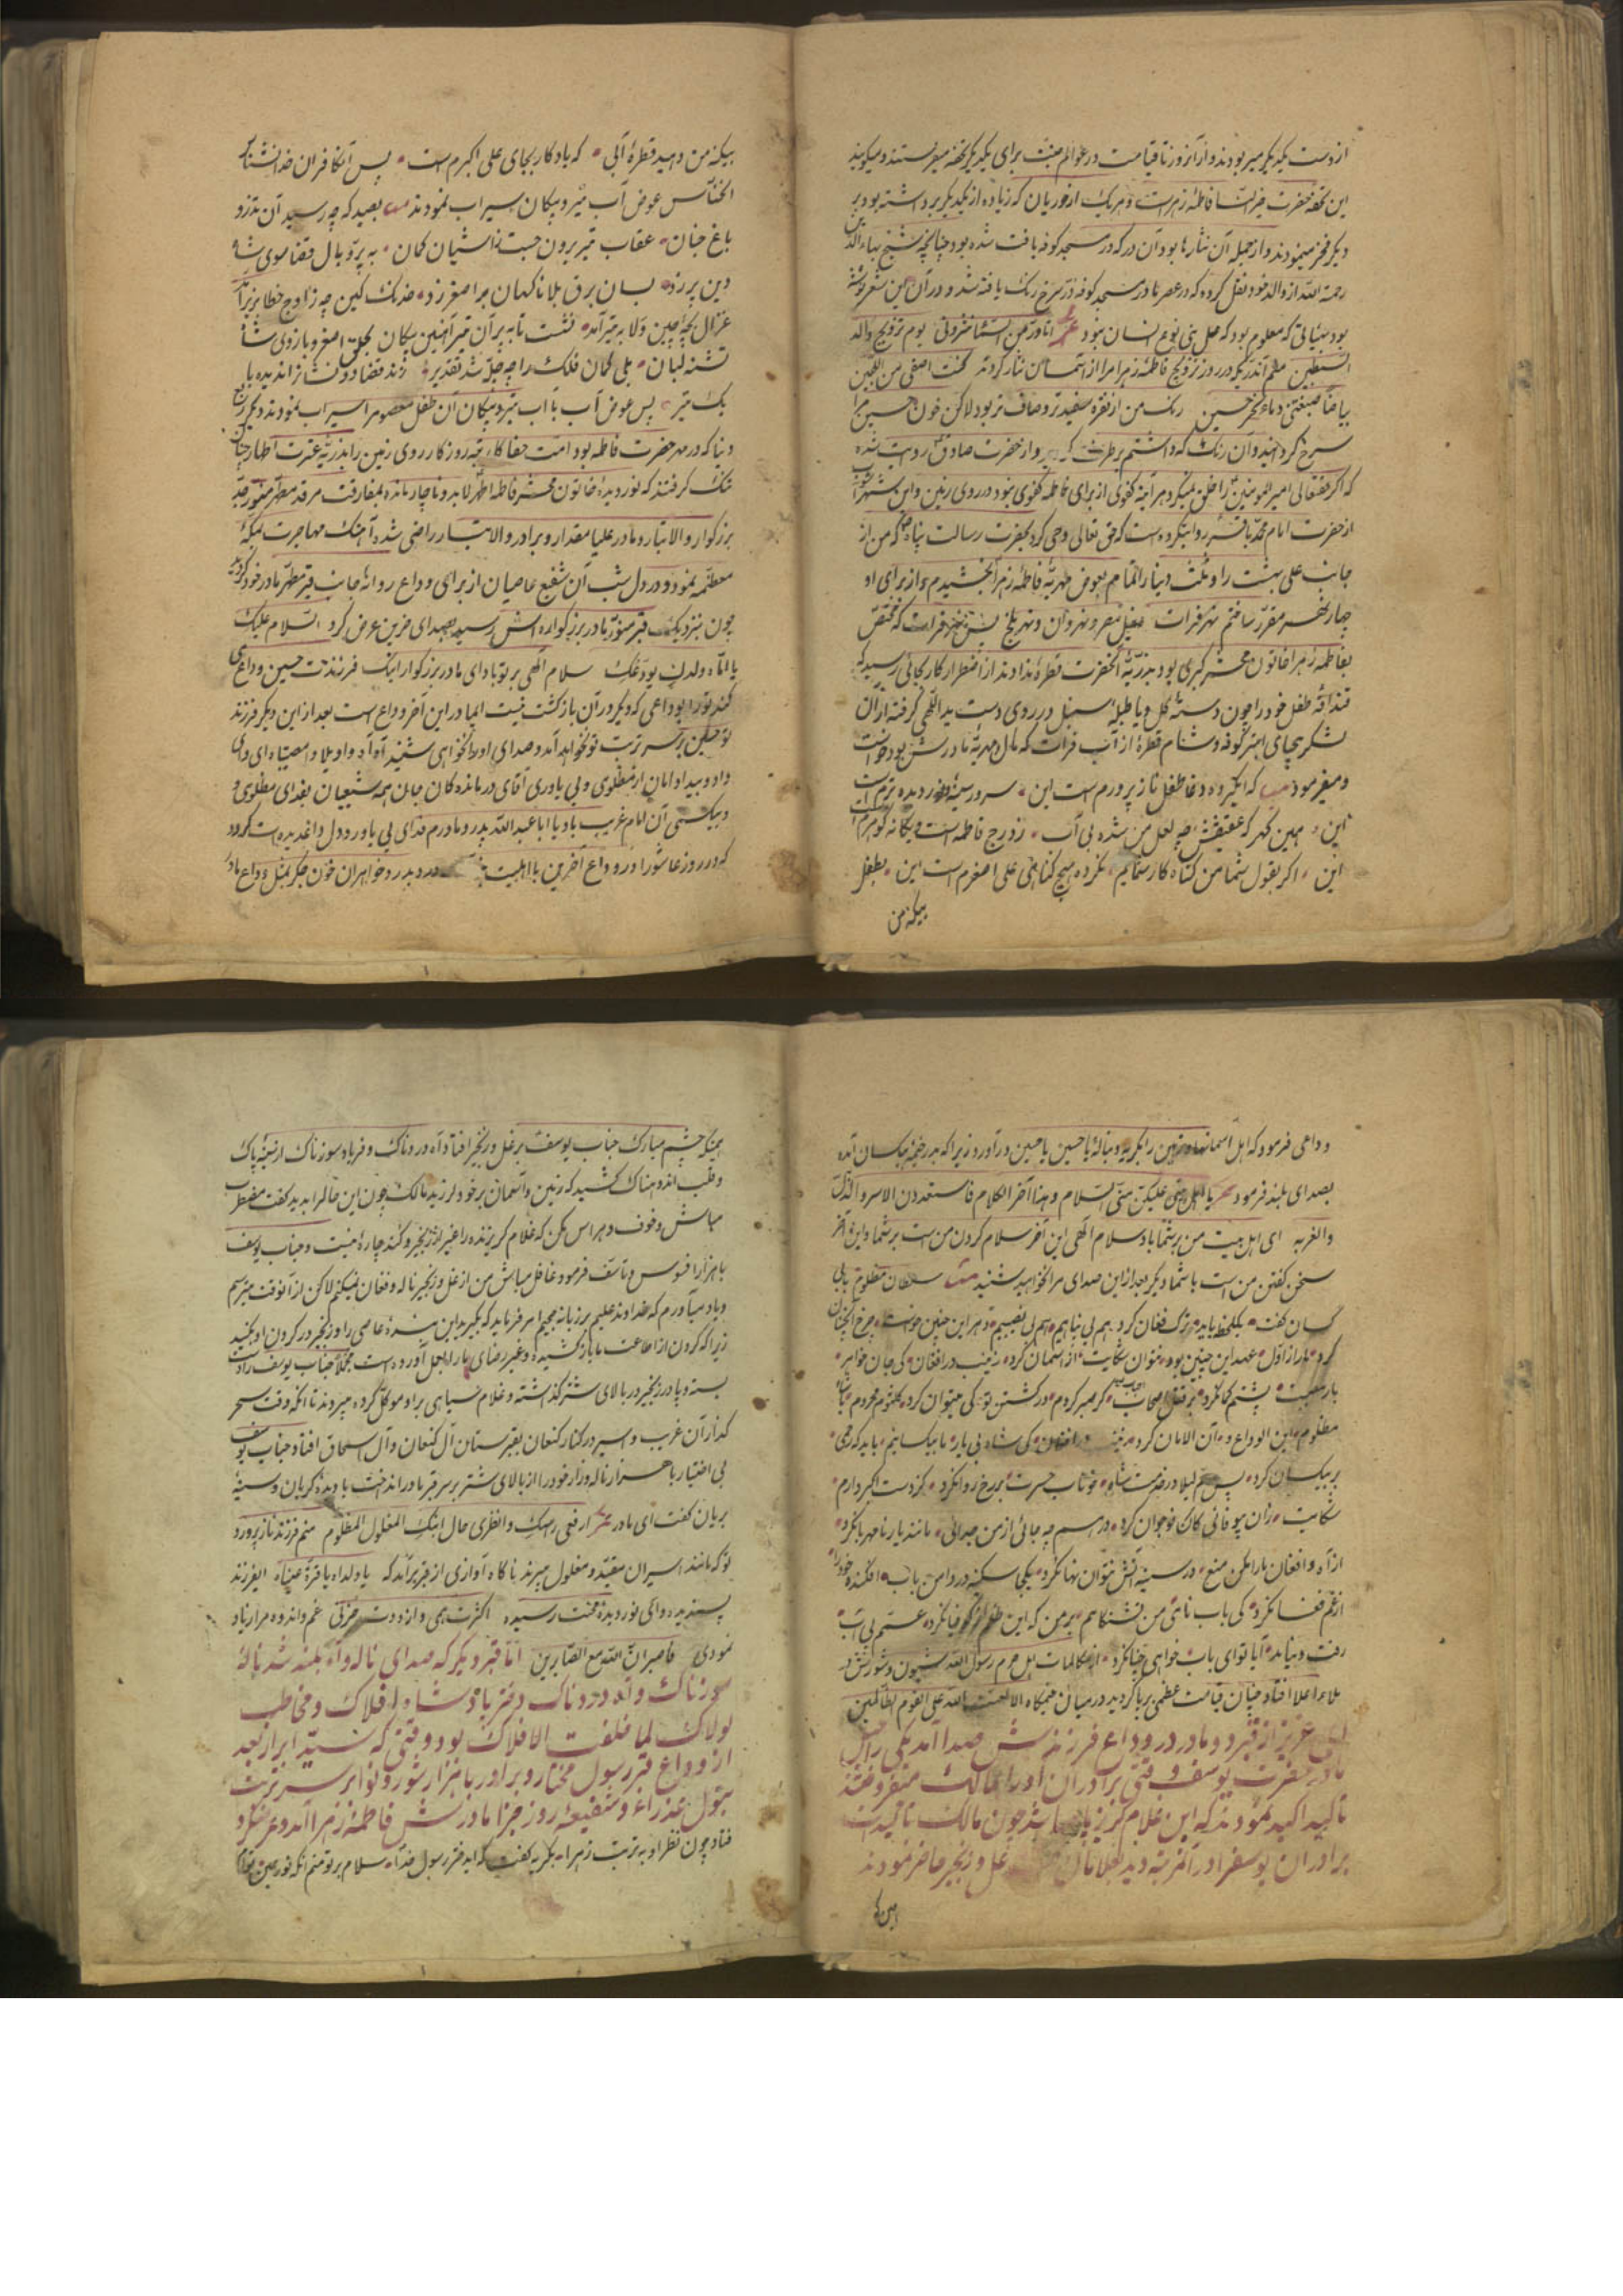 از دست یکدیگر میربودند و از آنروز تا قیامت در عوالم جنت برای یکدیگر تحفه میفرستند و میگویند
این تحفه حضرت خیر النسا فاطمه زهراست و هریک از حوریان که زیاده از یکدیگر برداشته بود بر
دیگر فخر مینمودند و از جمله آن نثارها بود آن در که در مسجد کوفه یافت شده بود چنانچه شیخ بهاء الدین
رحمة الله از والد خود نقل کرده که در عصر ما در مسجد کوفه در سرخ رنگ یافته شد و در آن این شعر نوشته
بود بیاتی که معلوم بود که عمل بنی نوع انسان نبود شعر انا در من السما نثرونی یوم تزویج والد
السبطین منم آندر که در روز تزویج فاطمه زهرا مرا از آسمان نثار کردند کنت اصفی من اللجین
بیاضا صبغتنی دماء نحر حسین رنگ من از نقره سفیدتر و صاف تر بود لاکن خون حسین مرا
سرخ گردانید و آن رنگ که داشتم برطرف و از حضرت صادق روایت شده
که اگر حقتعالی امیر المومنین را خلق نمیکرد هر آینه کفوی از برای فاطمه کفوی نبود در روی زمین و ابن شهر آشوب
از حضرت امام محمد باقر روایتکرده است که حق تعالی وحی کرد بحضرت رسالت پناه که من از
جانب علی بهشت را و ثلث دنیا را تمام بعوض مهریه فاطمه زهرا بخشیدم و از برای او
چهار نهر مقرر ساختم نهر فرات و نیل مصر و نهروان و نهر بلخ پس نهر فرات که مختص
بفاطمه زهرا خاتون محشر کبری بود بذریه آنحضرت قطره ندادند از اضطرار کار بجائی رسید که
قنداقه طفل خود را چون دسته گل و یا طبله سنبل در روی دست ید اللهی گرفته از آن
لشکر بیحیای ابتر کوفه و شام قطره از آب فرات که مال مهریه مادرش بود خواست
و میفرمود که ایگروه دغا طفل نازپرورم است این سرور سینه و نور دیده ترم است
این همین گهر که عقیقش چه لعل من شده بی آب ز درج فاطمه است و یگانه گوهرم است
این اگر بقول شما من گناه کار شمایم نکرده هیچ گناهی علی اصغرم است این بطفل
بیگنه من
بیگنه من دهید قطره آبی که یادگار بجای علی اکبرم است پس آنکافران خدانشناس
الخناس عوض آب تیر و پیکان سیراب نمودند بصید که چه رسید آن تذرو
باغ جنان عقاب تیر برون جست ز آشیان کمان به پر و بال قضا سوی شاه
دین پر زد بسان برق بلا ناگهان بر اصغر زد خدنگ کین چه ز اوج خطا بزیر آمد
غزال بچه چین ولا به تیر آمد نشست تا به پر آن تیر آهنین پیکان بحلق اصغر و بازوی شاه
تشنه لبان بلی کمان فلک را چه خلق شد تقدیر زند قضا دو نشان را ندیده با
یک تیر پس عوض آب با آب تیر و پیکان آن طفل معصوم را سیراب نمودند و دیگر ربع
دنیا که در مهر حضرت فاطمه بود امت جفا کار تیره روزگار روی زمین را بذریه عترت اطهار چنان
تنگ گرفتند که نور دیده خاتون محشر فاطمه اطهر لابد و ناچار مانده بمفارقت مرقد مطهر منور جد
بزرگوار والاتبار و مادر علیا مقدار و برادر والاتبار راضی شده آهنگ مهاجرت بمکه
معظمه نمود و در دل شب آن شفیع عاصیان از برای وداع روانه جانب قبر مطهر مادر خود گردید
چون بنزدیک قبر منور مادر بزرگواره اش رسید بصدای حزین عرض کرد السلام علیک
یا اماه ولدک یودعک سلام الهی بر تو باد ای مادر بزرگوار اینک فرزندت حسین وداع می
کند تو را بوداعی که دیگر در آن بازگشت نیست ایمادر این آخر وداع است بعد از این دیگر فرزند
تو حسین بر سر تربت تو نخواهد آمد و صدای او را نخواهی شنید آه آه واویلا وامصیبتاه ای وای
داد و بیداد امان از مظلومی و بی یاوری آقای درمانده گان جان همه شیعیان بفدای مظلومی و
و بیکسی آن امام غریب باد یا ابا عبد الله پدر و مادرم فدای بی یاور و دل داغدیده ات گردد
که در روز عاشورا در وداع آخرین با اهلبیت درد پدر و خواهران خون جگر بمثل وداع مادر
وداعی فرمود که اهل آسمانها و زمین را بگریه و بناله یا حسین یا حسین در آورد زیرا که بدر خیمه بیکسان آمده
بصدای بلند فرمود یا اهل بیتی علیکن منی السلام و هذا آخر الکلام فاستعدن الاسر والذل
والغربه ای اهل بیت من بر شما باد سلام الهی این آخر سلام کردن من است بر شما و این آخر
سخن گفتن من است با شما و دیگر بعد از این صدای مرا نخواهید شنید سلطان مظلوم با بی
کسان گفت
کرد ما را از اول عهد این چنین بود نتوان شکایت از آسمان کرد زینب در افغان کی جان خواهر
بار مصیبت پشتم کمان کرد بر قتل اصحاب گر صبر کردم در کشتن تو کی میتوان کرد کلثوم محروم با شاه
مظلوم این الوداع و آن الامان کرد در افغان کی شاه بی یار ما بیکسانیم باید که رحمی
بر بیکسان کرد پس ام لیلا در خدمت شاه خوناب حسرت بر رخ روانکرد کز دست اکبر دارم
شکایت زان بیوفائی کان نوجوان کرد در اسم چه جائی از من جدائی مانند یار نامهربانکرد
از آه و افغان ما را مکن منع در سینه آتش نتوان نهانکرد یکجا سکینه در دامن باب افکنده خود را
از غم فغانکرد کی باب نامی من تشنکامم بر من که این ظلم
رفت و نیامد آیا تو ای باب خواهی چنانکرد از مکالمات اهل حرم رسول الله شیون و شورش در
ملاء اعلا افتاد چنان قیامت عظمی برپا گردید در میان خیمگاه الا لعنت الله علی القوم الظالمین
ای عزیز از قبر دو مادر در وداع فرزندش صدا آمد یکی راحیل
مادر حضرت یوسف وقتی برادران او را بمالک میفروختند
تاکید اکید نمودند که این غلام گریزپا چون مالک تاکیدات
برادران یوسف را در آن مرتبه دید بغلامان غل و زنجیر حاضر نمودند
همین که
همینکه چشم مبارک جناب یوسف بر غل و زنجیر افتاد آه دردناک و فریاد سوزناک از سینه پاک
و قلب اندوهناک کشید که زمین و آسمان بر خود لرزید مالک چون این حال را بدید گفت مضطرب
مباش و خوف و هراس مکن که غلام گریزنده را غیر از زنجیر و کند چاره نیست و جناب یوسف
با هزار افسوس و تاسف فرمود غافل مباش من از غل و زنجیر ناله و فغان نمیکنم لاکن از آنوقت میترسم
و یاد میآورم که خداوند علیم بر زبانه جهیم امر فرماید که بگیرید این بنده عاصی را و زنجیر در گردن او کنید
زیرا که گردن از اطاعت ما باز کشیده و غیر رضای ما را بعمل آورده است مجملا جناب یوسف را دست
بسته و پا در زنجیر در بالای شتر گذاشته و غلام سیاهی بر او موکل کرده میبردند تا آنکه وقت سحر
گذار آن غریب و اسیر در کنار کنعان بقبرستان آل کنعان و آل اسحاق افتاد جناب یوسف
بی اختیار با هزار ناله و زار خود را از بالای شتر بر سر قبر مادر انداخت با دیده گریان و سینه
بریان گفت ای مادر ارفعی راسک وانظری حال ابنک المغلول المظلوم منم فرزند نازپرورد
تو که مانند اسیران مقید و مغلول میبرند ناگاه آوازی از قبر برآمد که یا ولداه یا قرة عیناه ایفرزند
پسندیده وای نور دیده محنت رسیده اکثرت همی وازددت حزنی غم و اندوه مرا زیاد
نمودی فاصبر ان الله مع الصابرین اما قبر دیگر که صدای ناله و آه بلند شد ناله
سوزناک و آه دردناک دختر پادشاه لولاک و مخاطب
لولاک لما خلقت الافلاک بود وقتی که سید ابرار بعد
از وداع قبر رسول مختار و برادر با هزار شور و نوا بر سر تربت
بتول عذراء و شفیعه روز جزا مادرش فاطمه زهرا آمد و عرض کرد
فتاد چون نظر او به تربت زهرا بگریه گفت که ایدختر رسول خدا سلام بر تو منم آنکه نور عین توام